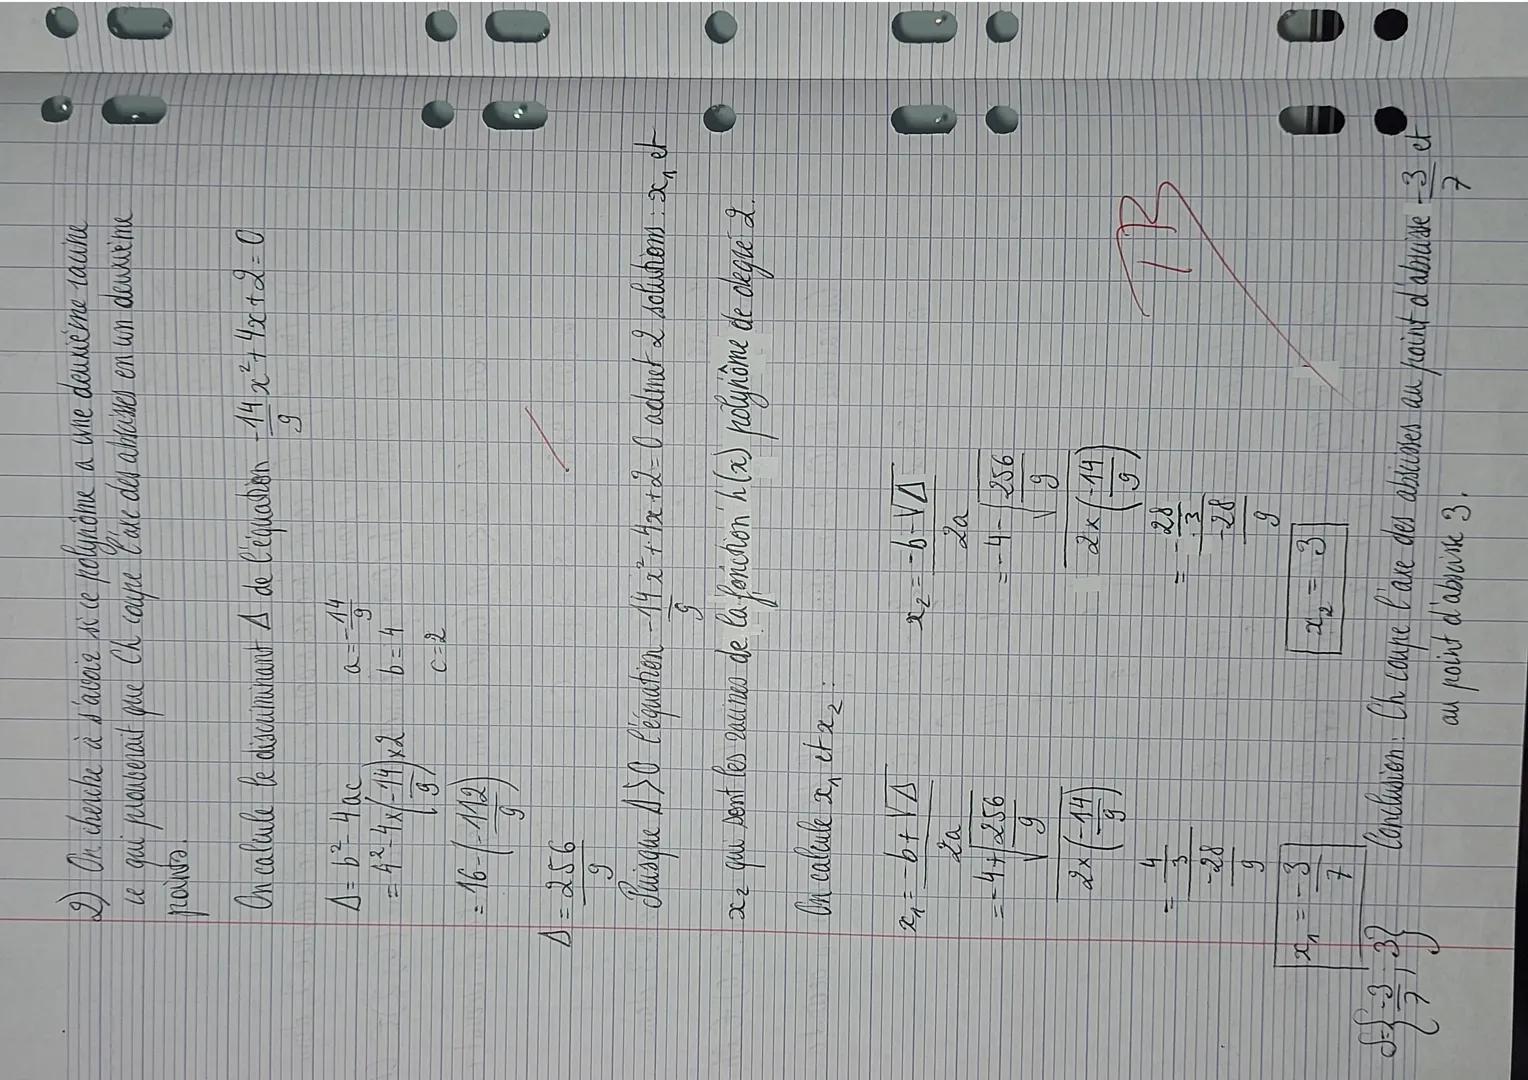 2) On cherche à s'avoir si ce polynôme a une deuxième racine
ce qui prouverait que Ch coupe l'axe des abscisses en un deuxième
points.
On calcule le discriminant Δ de l'équation -14/9 x² + 4x + 2 = 0
Δ = b² - 4ac
a = -14/9
= 4² - 4 × (-14/9) × 2
b = 4
= 16 - (-112/9)
c = 2
Δ = 256/9
Puisque Δ > 0 l'équation -14/9 x² + 4x + 2 = 0 admet 2 solutions : x₁ et
x₂ qui sont les racines de la fonction h(x) polynôme de degré 2.
On calcule x₁ et x₂ :
x₁ = (-b + √Δ)/2a
= (-4 + √(256/9))/(2 × (-14/9))
= -(4/3)/(-28/9)
x₁ = -3/7
x₂ = (-b - √Δ)/2a
= (-4 - √(256/9))/(2 × (-14/9))
= (-28/3)/(-28/9)
x₂ = 3
TB
S = {-3/7 ; 3}
Conclusion : Ch coupe l'axe des abscisses au point d'abscisse -3/7 et
au point d'abscisse 3.